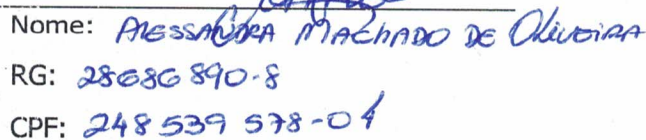 Nome: ALESSANDRA MACHADO DE OLIVEIRA
RG: 28686890-8
CPF: 248 539 578-04